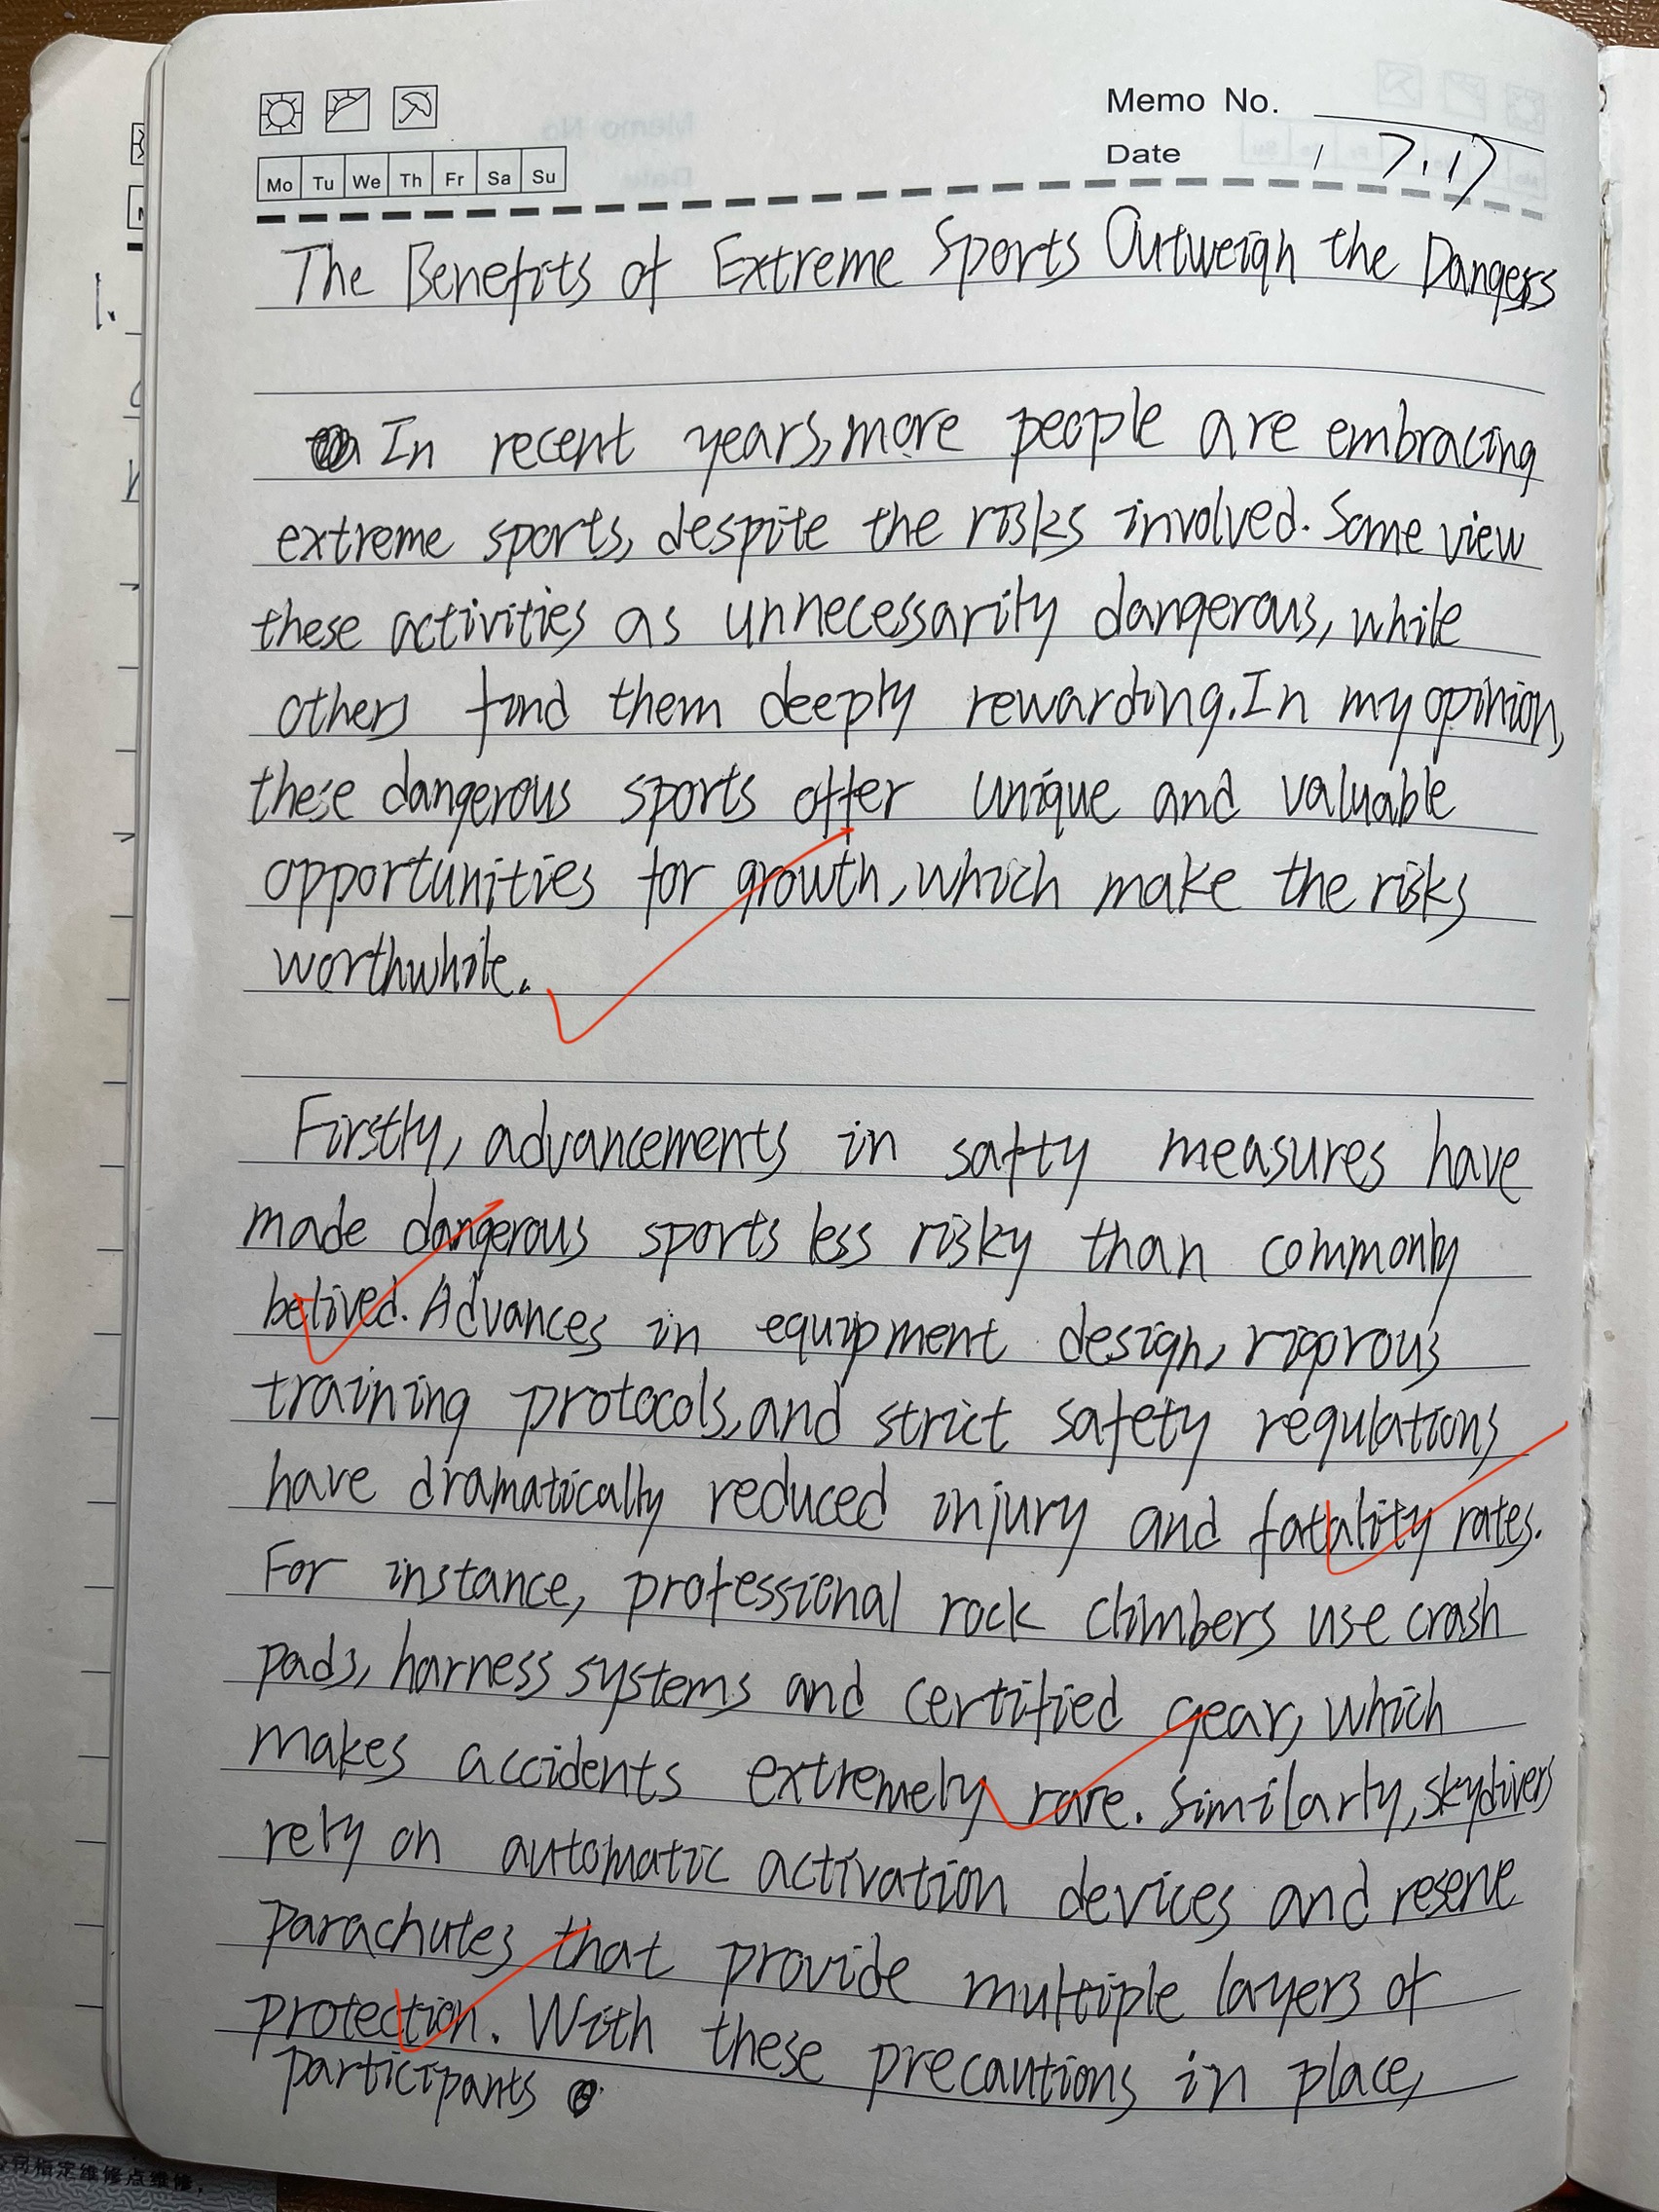 Memo No.
Date 7.17
Mo Tu We Th Fr Sa Su
The Benefits of Extreme Sports Outweigh the Dangers
In recent years, more people are embracing
extreme sports, despite the risks involved. Some view
these activities as unnecessarily dangerous, while
others find them deeply rewarding. In my opinion,
these dangerous sports offer unique and valuable
opportunities for growth, which make the risks
worthwhile.
Firstly, advancements in safty measures have
made dangerous sports less risky than commonly
belived. Advances in equipment design, rigorous
training protocols, and strict safety regulations
have dramatically reduced injury and fatality rates.
For instance, professional rock climbers use crash
pads, harness systems and certified gear, which
makes accidents extremely rare. Similarly, skydivers
rely on automatic activation devices and reserve
parachutes that provide multiple layers of
protection. With these precautions in place,
participants
司指定维修点维修,